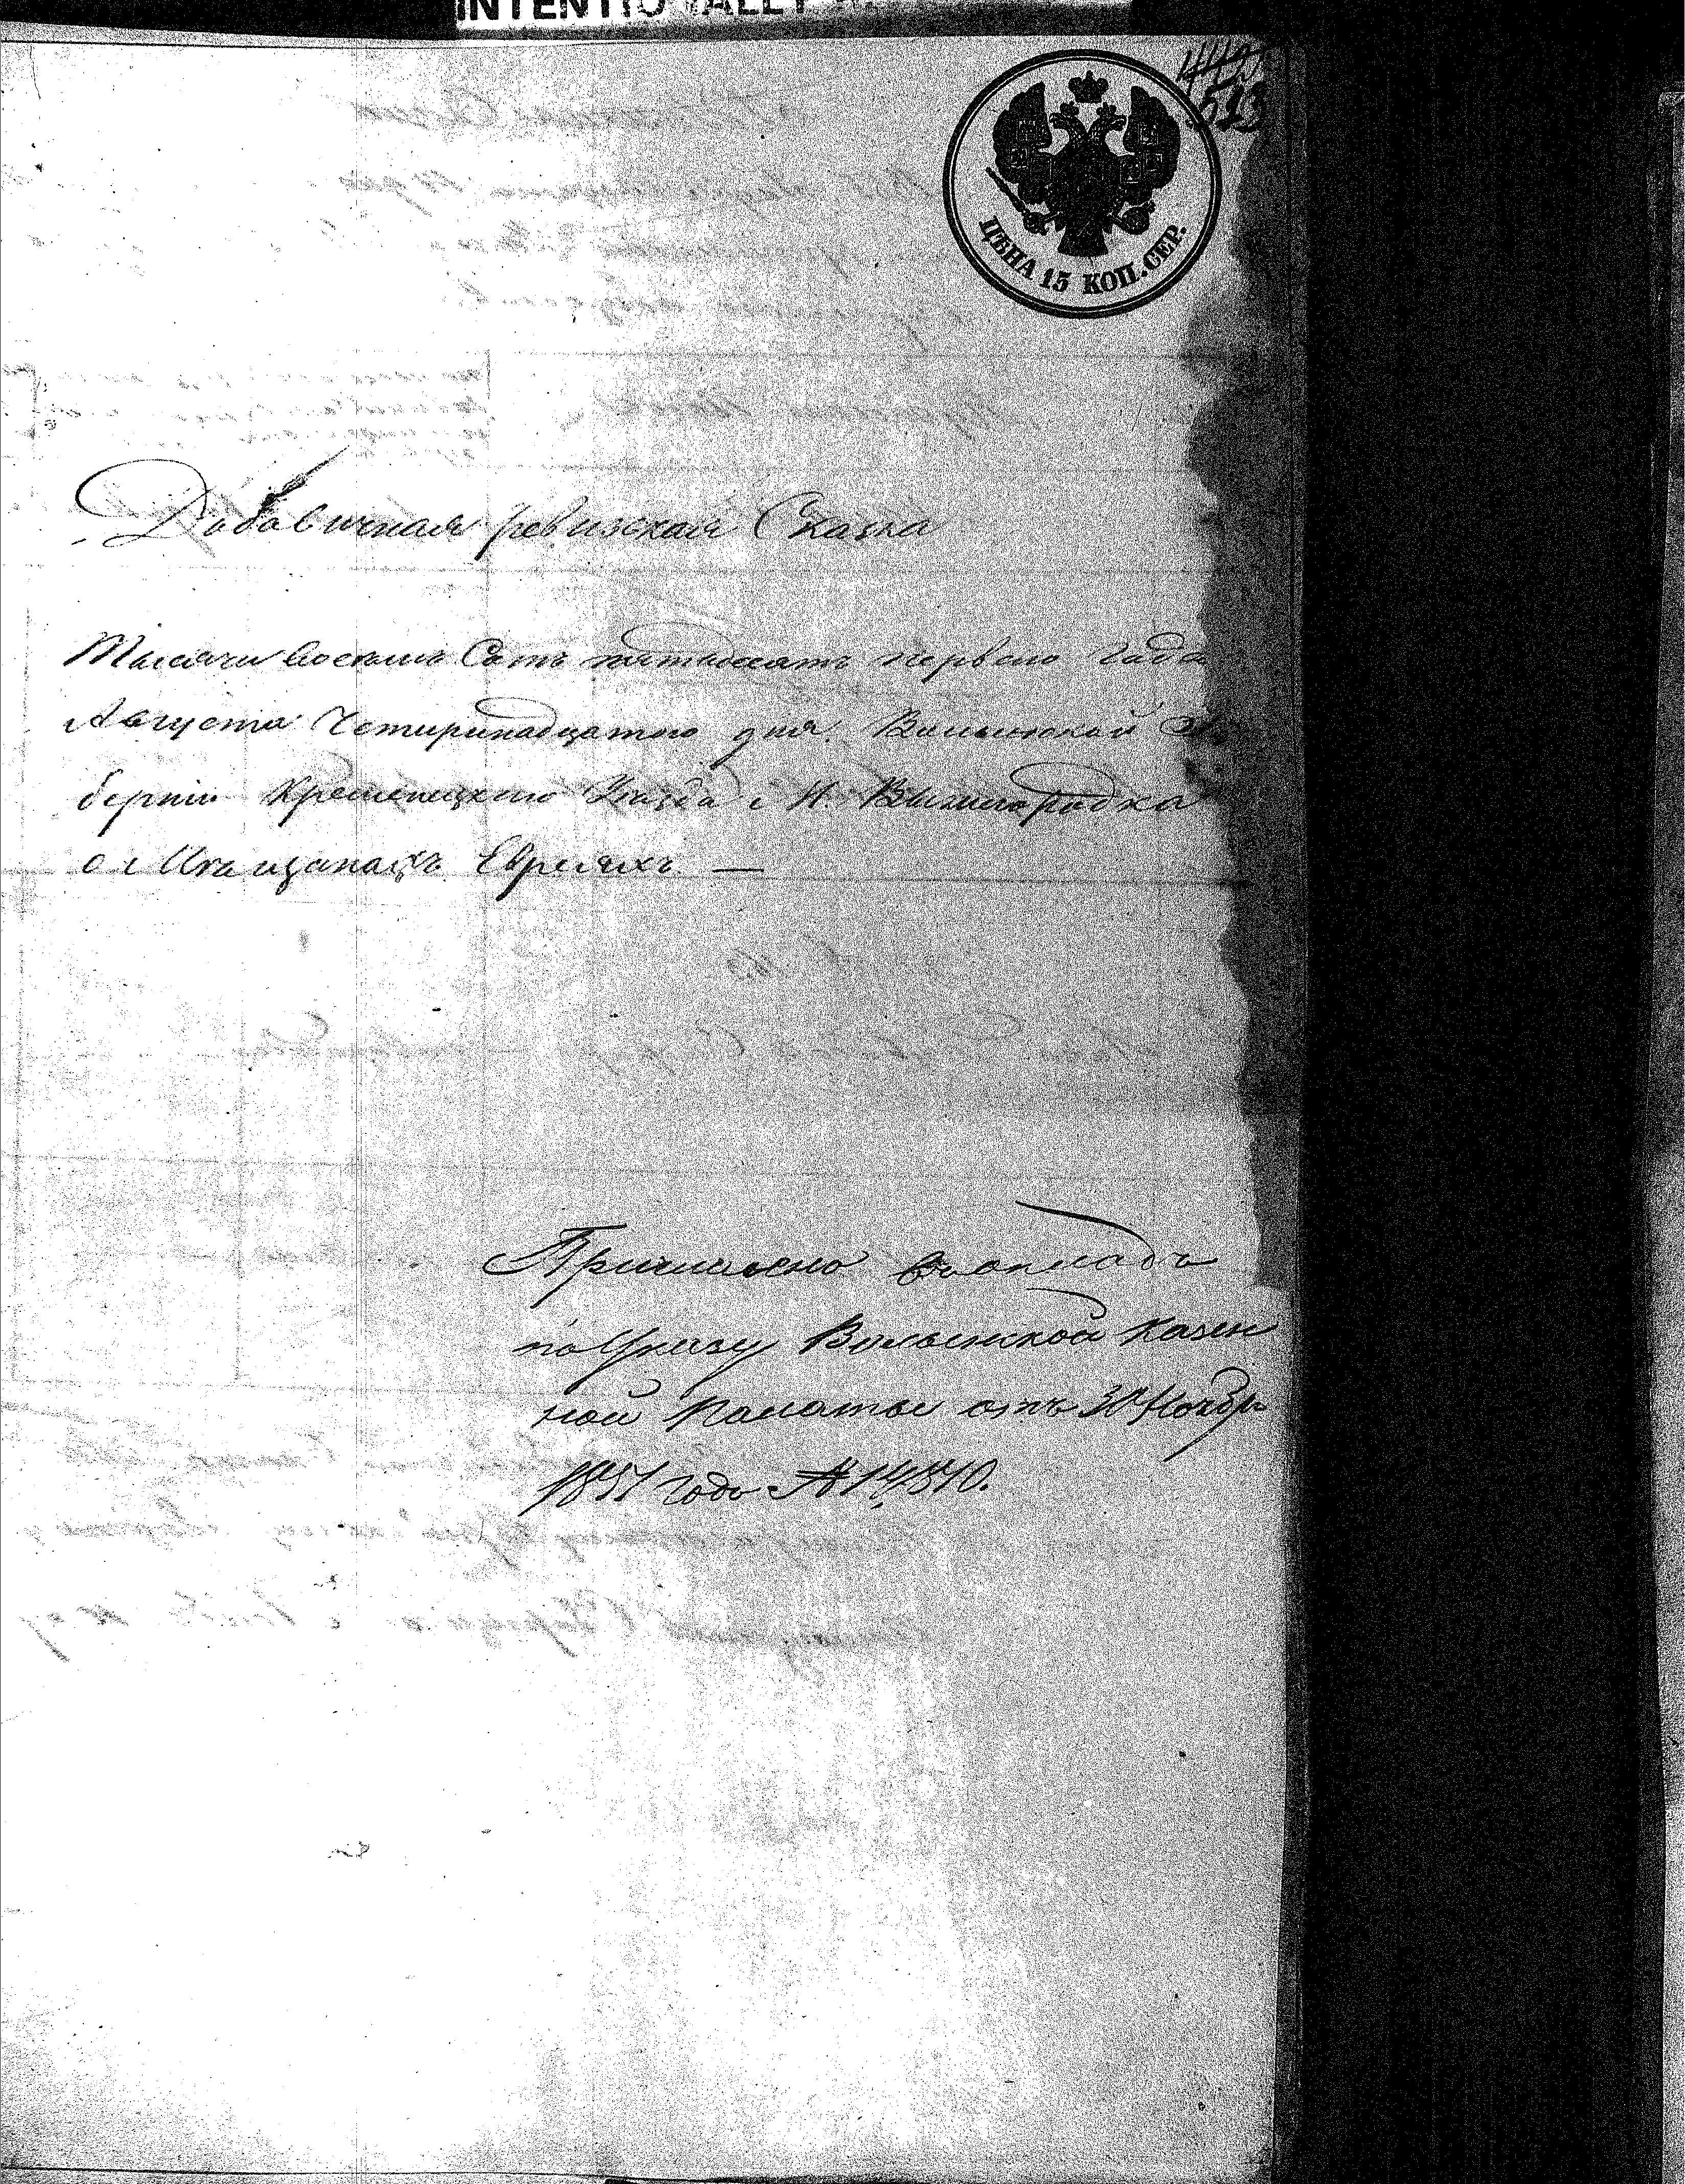 INTENTIO
523
ЦѢНА 15 КОП. СЕР.
Добавичная ревизская Сказка
Тысячи восемь Сотъ пятьдесятъ первого Года
Августа Четиринадцатого дня. Волынской
берніи Кременецкого Уѣзда с М. Вышгородка
о Мѣщанахъ Евреяхъ —
Причислено въ окладъ
по Указу Волынской Казен
ной Палаты отъ 30 Ноябр
1851 года №